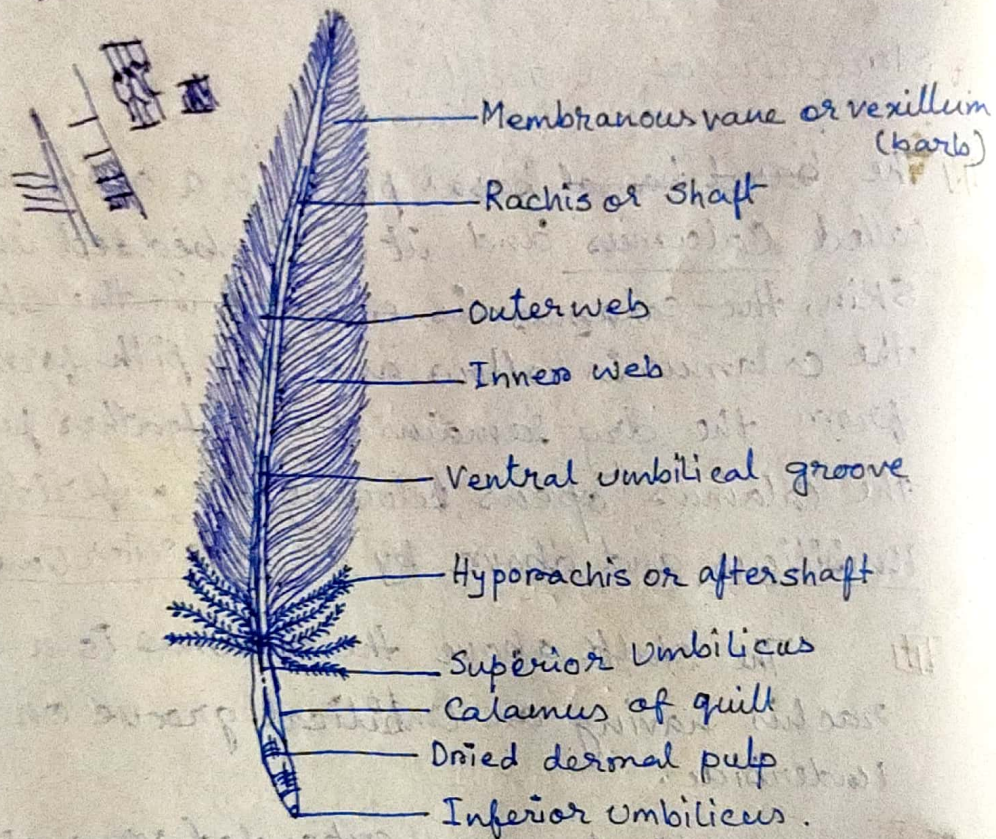 Membranous vane or vexillum
(barb)
Rachis or shaft
Outer web
Inner web
Ventral umbilical groove
Hyporachis or aftershaft
Superior Umbilicus
Calamus of quill
Dried dermal pulp
Inferior umbilicus.